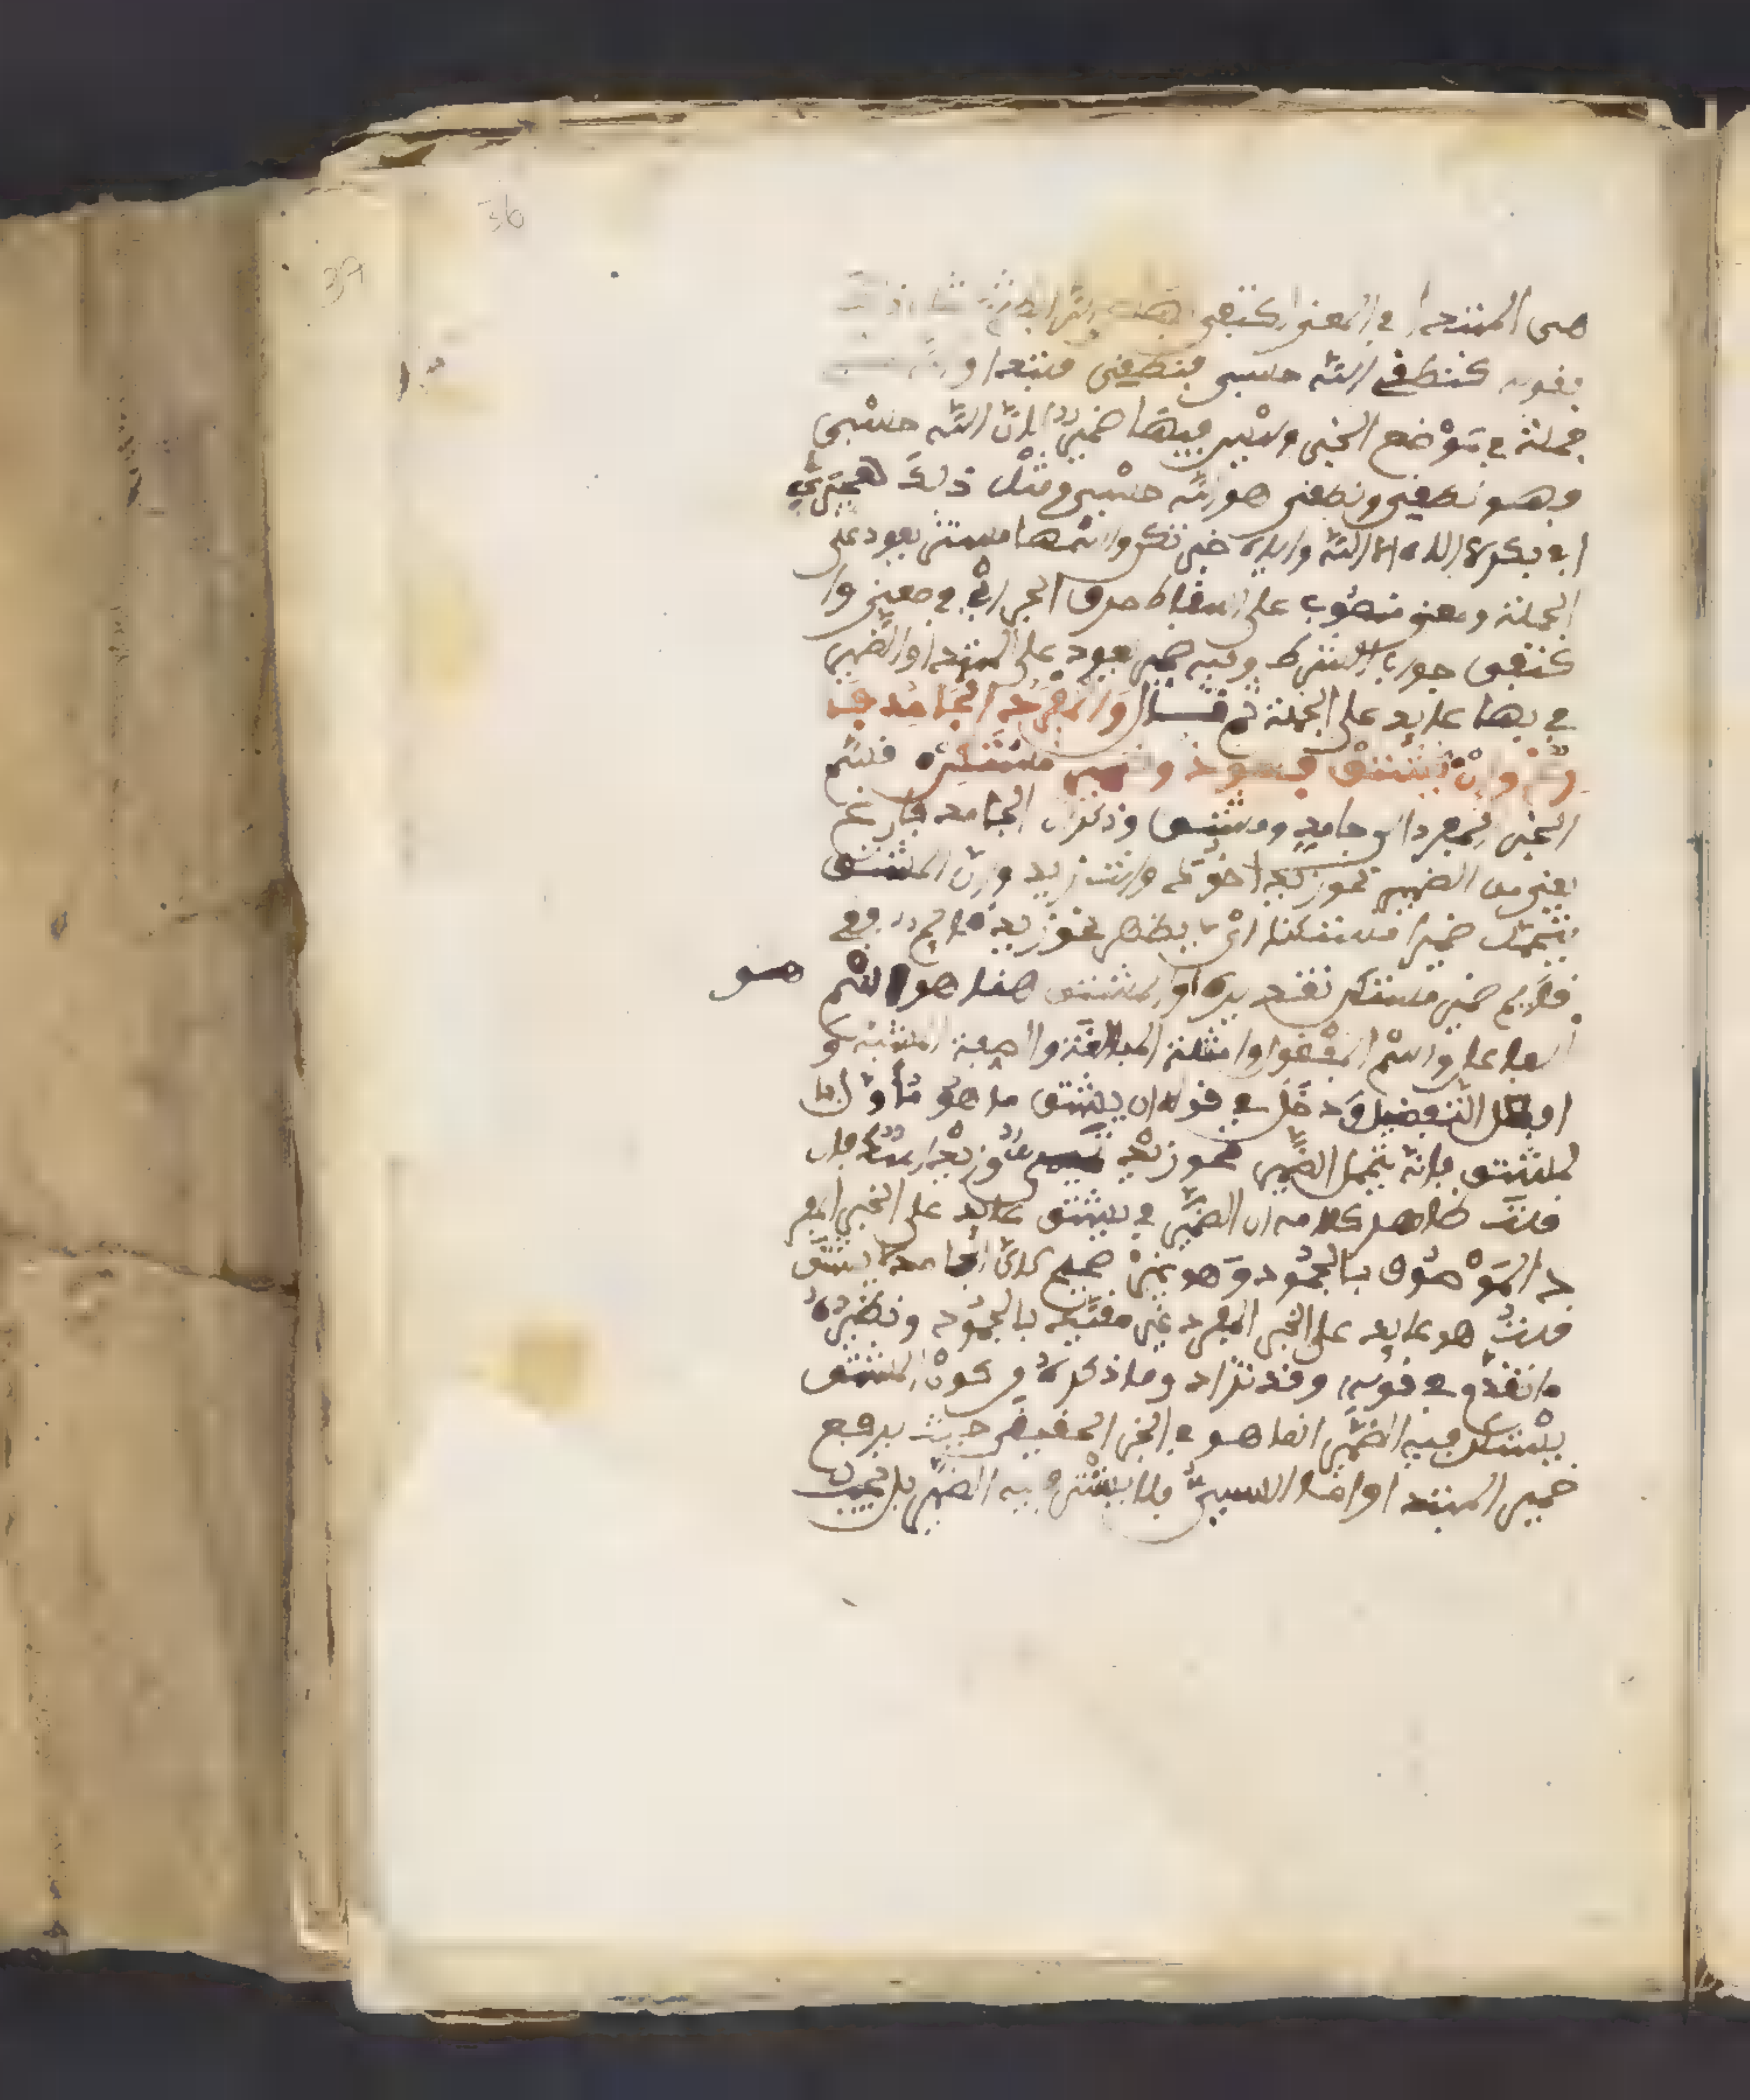 36
37
هي المبتدا في المعنى اكتفى بها
بقوله كنطفي الله حسبي فنطفي مبتدا و
جملة في موضع الخبر وليس فيها ضمير لان الله حسبي
وهو نطفي ونطفي هو الله حسبي ومثل ذلك هجيرى
ابي بكر لا اله الا الله واياه خبر تكن واسمها مستتر يعود على
الجملة ومعنى منصوب على اسقاط حرف الجر اي في معنى وا
كتفى جواب الشرط وفيه ضمير يعود على المبتدا والضمير
في بها عايد على الجملة ثم قال والمفرد الجامد فا
رغ وان يشتق فهو ذو ضمير مستكن قسم
الخبر المفرد الى جامد ومشتق وذكر ان الجامد فارغ
يعني من الضمير نحو زيد اخوك وانت زيد وان المشتق
يتحمل ضميرا مستكنا اي لا يظهر نحو زيد قايم ففي
قايم ضمير مستكن تقديره هو
والمشتق هنا هو اسم
الفاعل واسم المفعول وامثلة المبالغة والصفة المشبهة و
افعل التفضيل ودخل في قوله ان يشتق ما هو مأول با
لمشتق فانه يتحمل الضمير نحو زيد وزيد اسد فان
قلت ظاهر كلامه ان الضمير في يشتق عايد على الخبر المفر
د الموصوف بالجمود وهو غير صحيح لان الجامد لا يشتق
قلت هو عايد على الخبر المفرد غير مقيد بالجمود ونظيره
ما تقدم في قوله وقد تزاد وما ذكره من كون المشتق
يستكن فيه الضمير انما هو في الخبر الحقيقي حيث يرفع
ضمير المبتدا واما السببي فلا يستتر فيه الضمير بل يجب